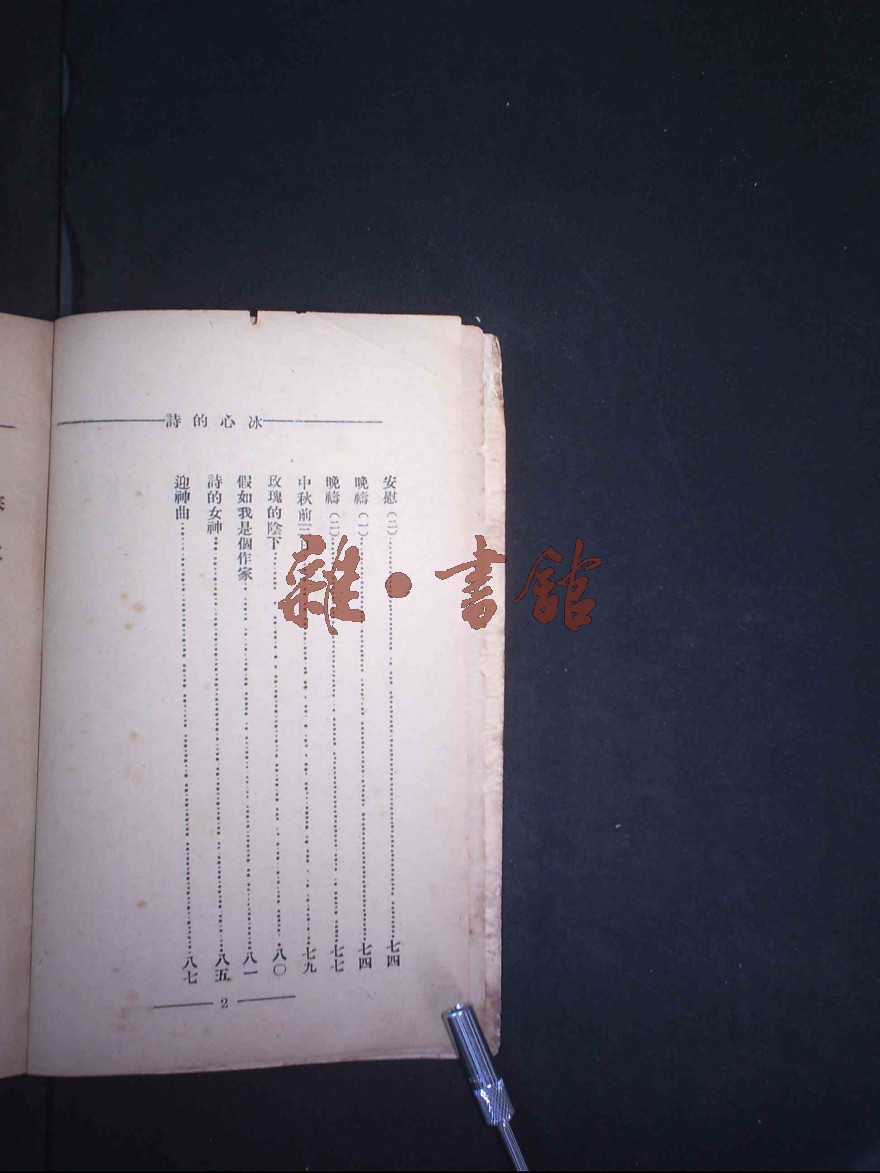 冰心的詩
安慰(二)……七四
晚禱(一)……七四
晚禱(二)……七七
中秋前三……七九
玫瑰的陰下……八〇
假如我是個作家……八一
詩的女神……八五
迎神曲……八七
2
雜·書館